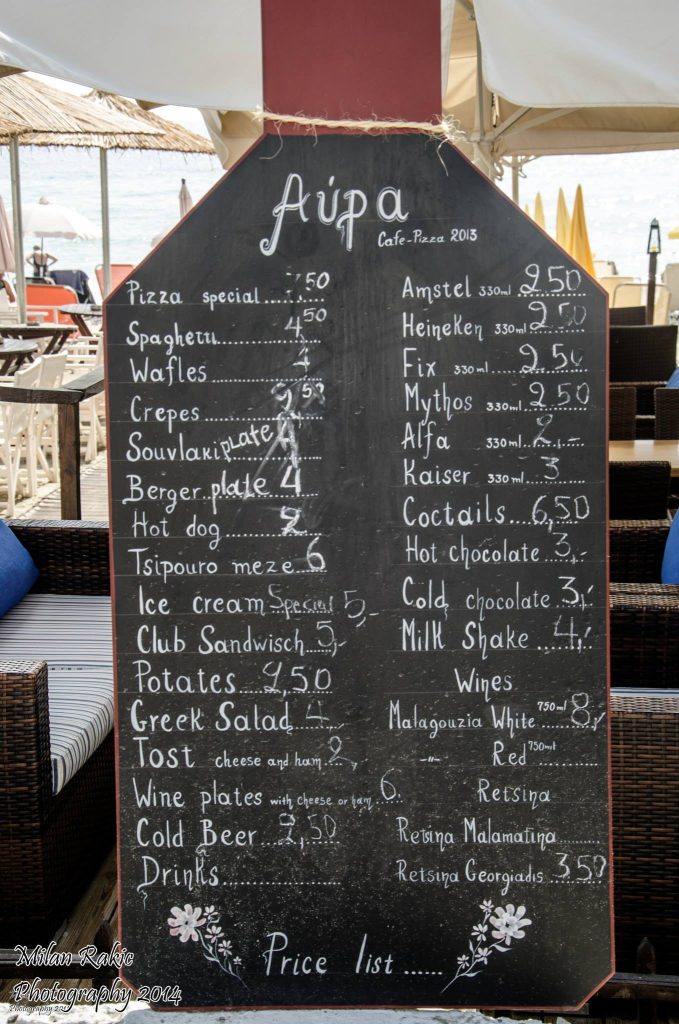 Αύρα
Cafe-Pizza 2013
Pizza special......50
Spaghetti......4 50
Wafles......4
Crepes......2 50
Souvlaki plate 4
Berger plate 4
Hot dog......2
Tsipouro meze 6
Ice cream Special 5,-
Club Sandwisch 5,-
Potates....2,50
Greek Salad 4
Tost cheese and ham 2,
Wine plates with cheese or ham 6
Cold Beer....2,50
Drinks..................
Amstel 330ml 2 50
Heineken 330ml 2 50
Fix 330ml 2 50
Mythos 330ml 2 50
Alfa 330ml 2,-
Kaiser 330ml 3
Coctails....6,50
Hot chocolate 3,-
Cold chocolate 3,-
Milk Shake 4,-
Wines
Malagouzia White 750ml 8,
-"- Red 750ml
Retsina
Retsina Malamatina........
Retsina Georgiadis 3 50
Price list ......
Milan Rakic
Photography 2014